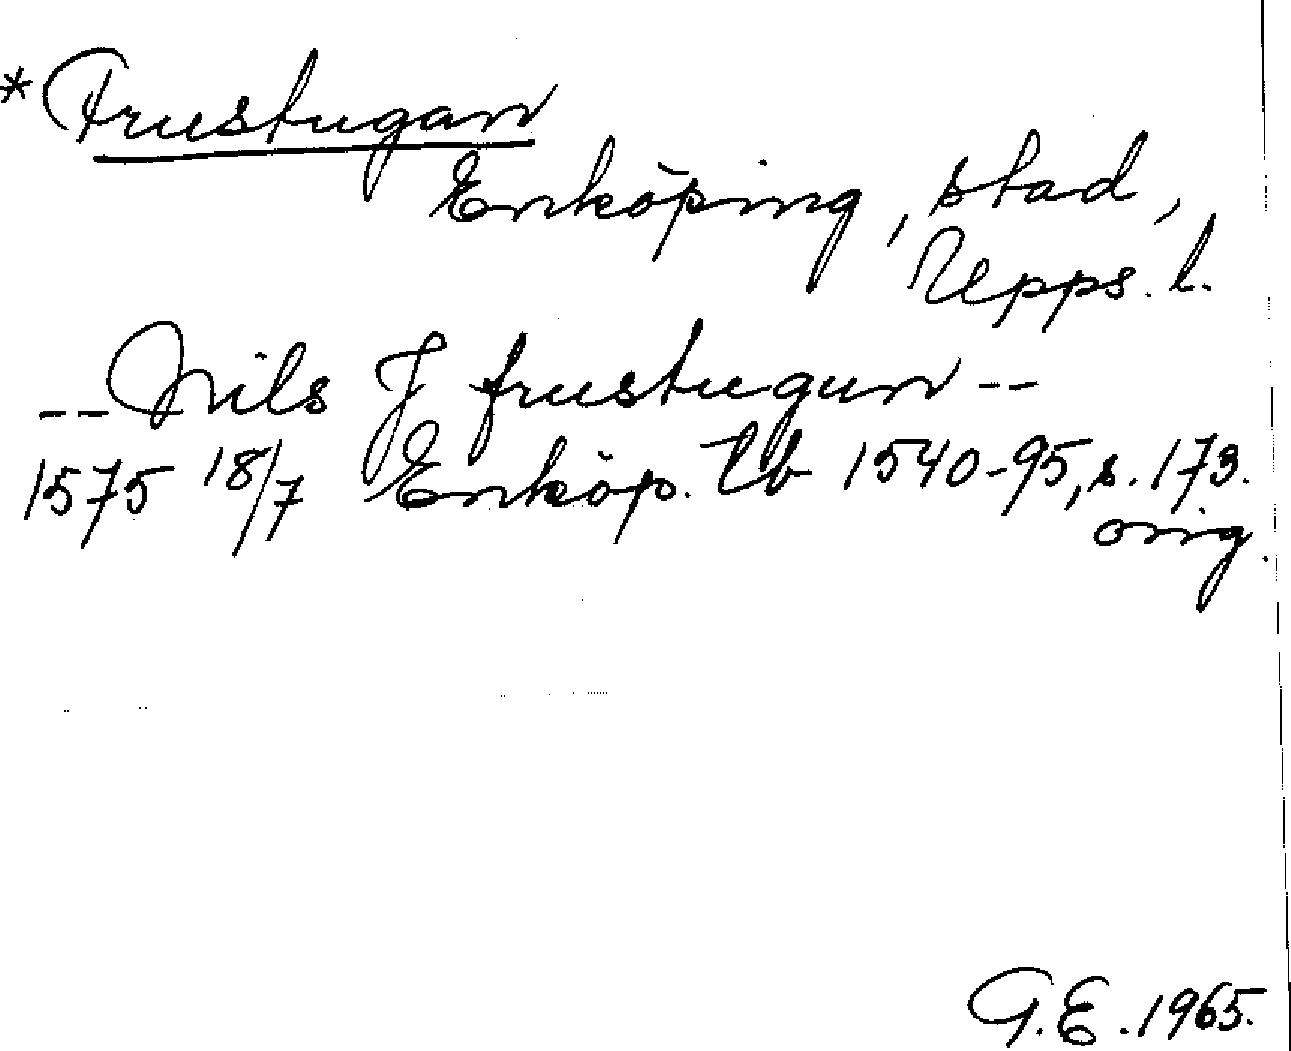 *Frustugan
Enköping, stad,
Upps. l.
--Nils J frustugun--
1575 18/7 Enköp. tb 1540-95, s. 173.
orig.
G.E. 1965.